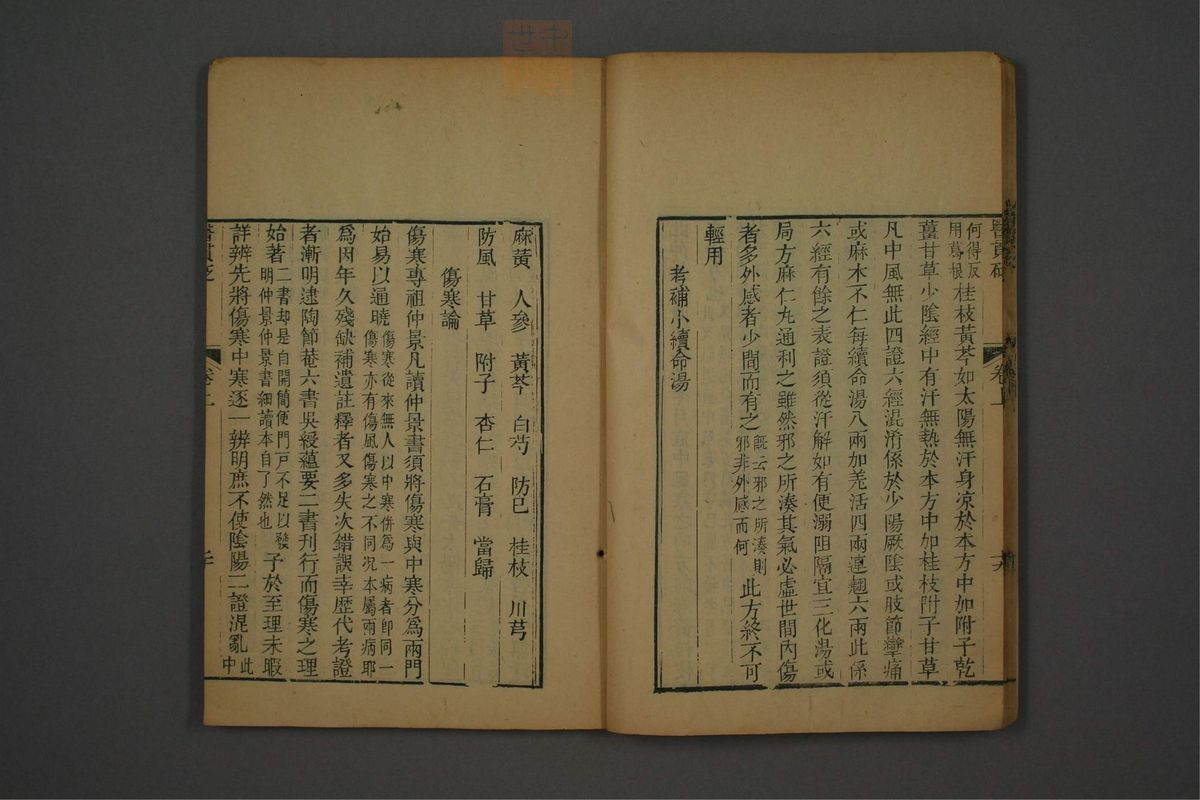 醫貫砭
卷上
何得反用葛根桂枝黃芩如太陽無汗身凉於本方中加附子乾
薑甘草少陰經中有汗無熱於本方中加桂枝附子甘草
凡中風無此四證六經混淆係於少陽厥陰或肢節攣痛
或麻木不仁每續命湯八兩加羌活四兩連翹六兩此係
六經有餘之表證須從汗解如有便溺阻隔宜三化湯或
局方麻仁丸通利之雖然邪之所湊其氣必虛世間內傷
者多外感者少間而有之既云邪之所湊則邪非外感而何此方終不可
輕用
考補小續命湯
麻黃 人參 黃芩 白芍 防已 桂枝 川芎
防風 甘草 附子 杏仁 石膏 當歸
傷寒論
傷寒專祖仲景凡讀仲景書須將傷寒與中寒分爲兩門
始易以通曉傷寒從來無人以中寒併爲一病者卽同一傷寒亦有傷風傷寒之不同况本屬兩病耶
爲因年久殘缺補遺註釋者又多失次錯誤幸歷代考證
者漸明逮陶節菴六書吳綬蘊要二書刊行而傷寒之理
始著二書却是自開簡便門戸不足以發明仲景仲景書細讀本自了然也子於至理未暇
詳辨先將傷寒中寒逐一辨明庶不使陰陽二證混亂此中
醫貫砭
卷上